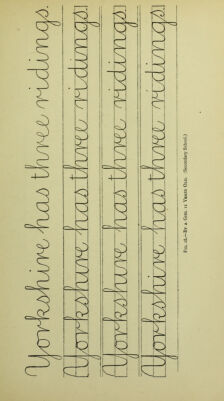 Yorkshire has three ridings.
Yorkshire has three ridings
Yorkshire has three ridings
Yorkshire has three ridings
FIG. 18.—BY A GIRL 11 YEARS OLD. (Secondary School.)